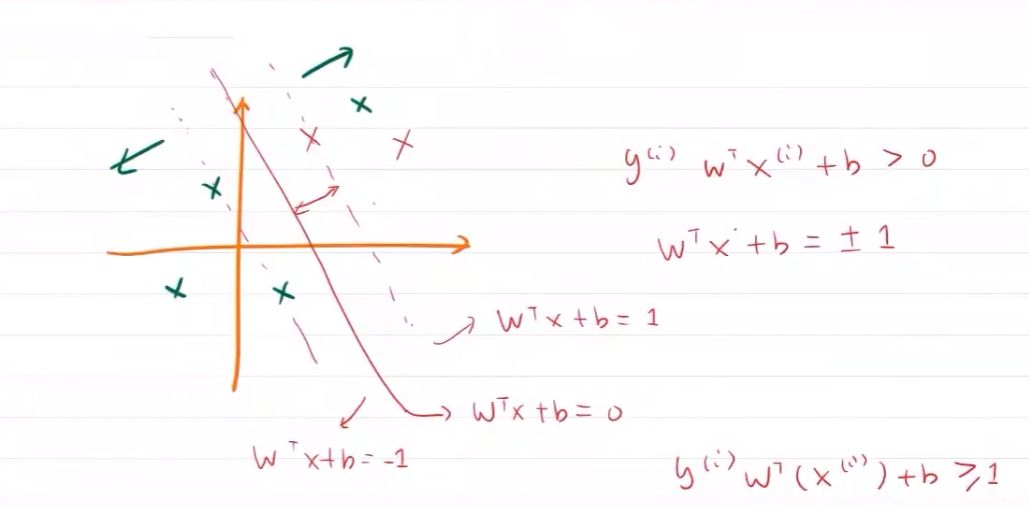 y⁽ⁱ⁾ wᵀx⁽ⁱ⁾ + b > 0
wᵀx + b = ± 1
wᵀx + b = 1
wᵀx + b = 0
wᵀx + b = -1
y⁽ⁱ⁾ wᵀ(x⁽ⁱ⁾) + b ≥ 1